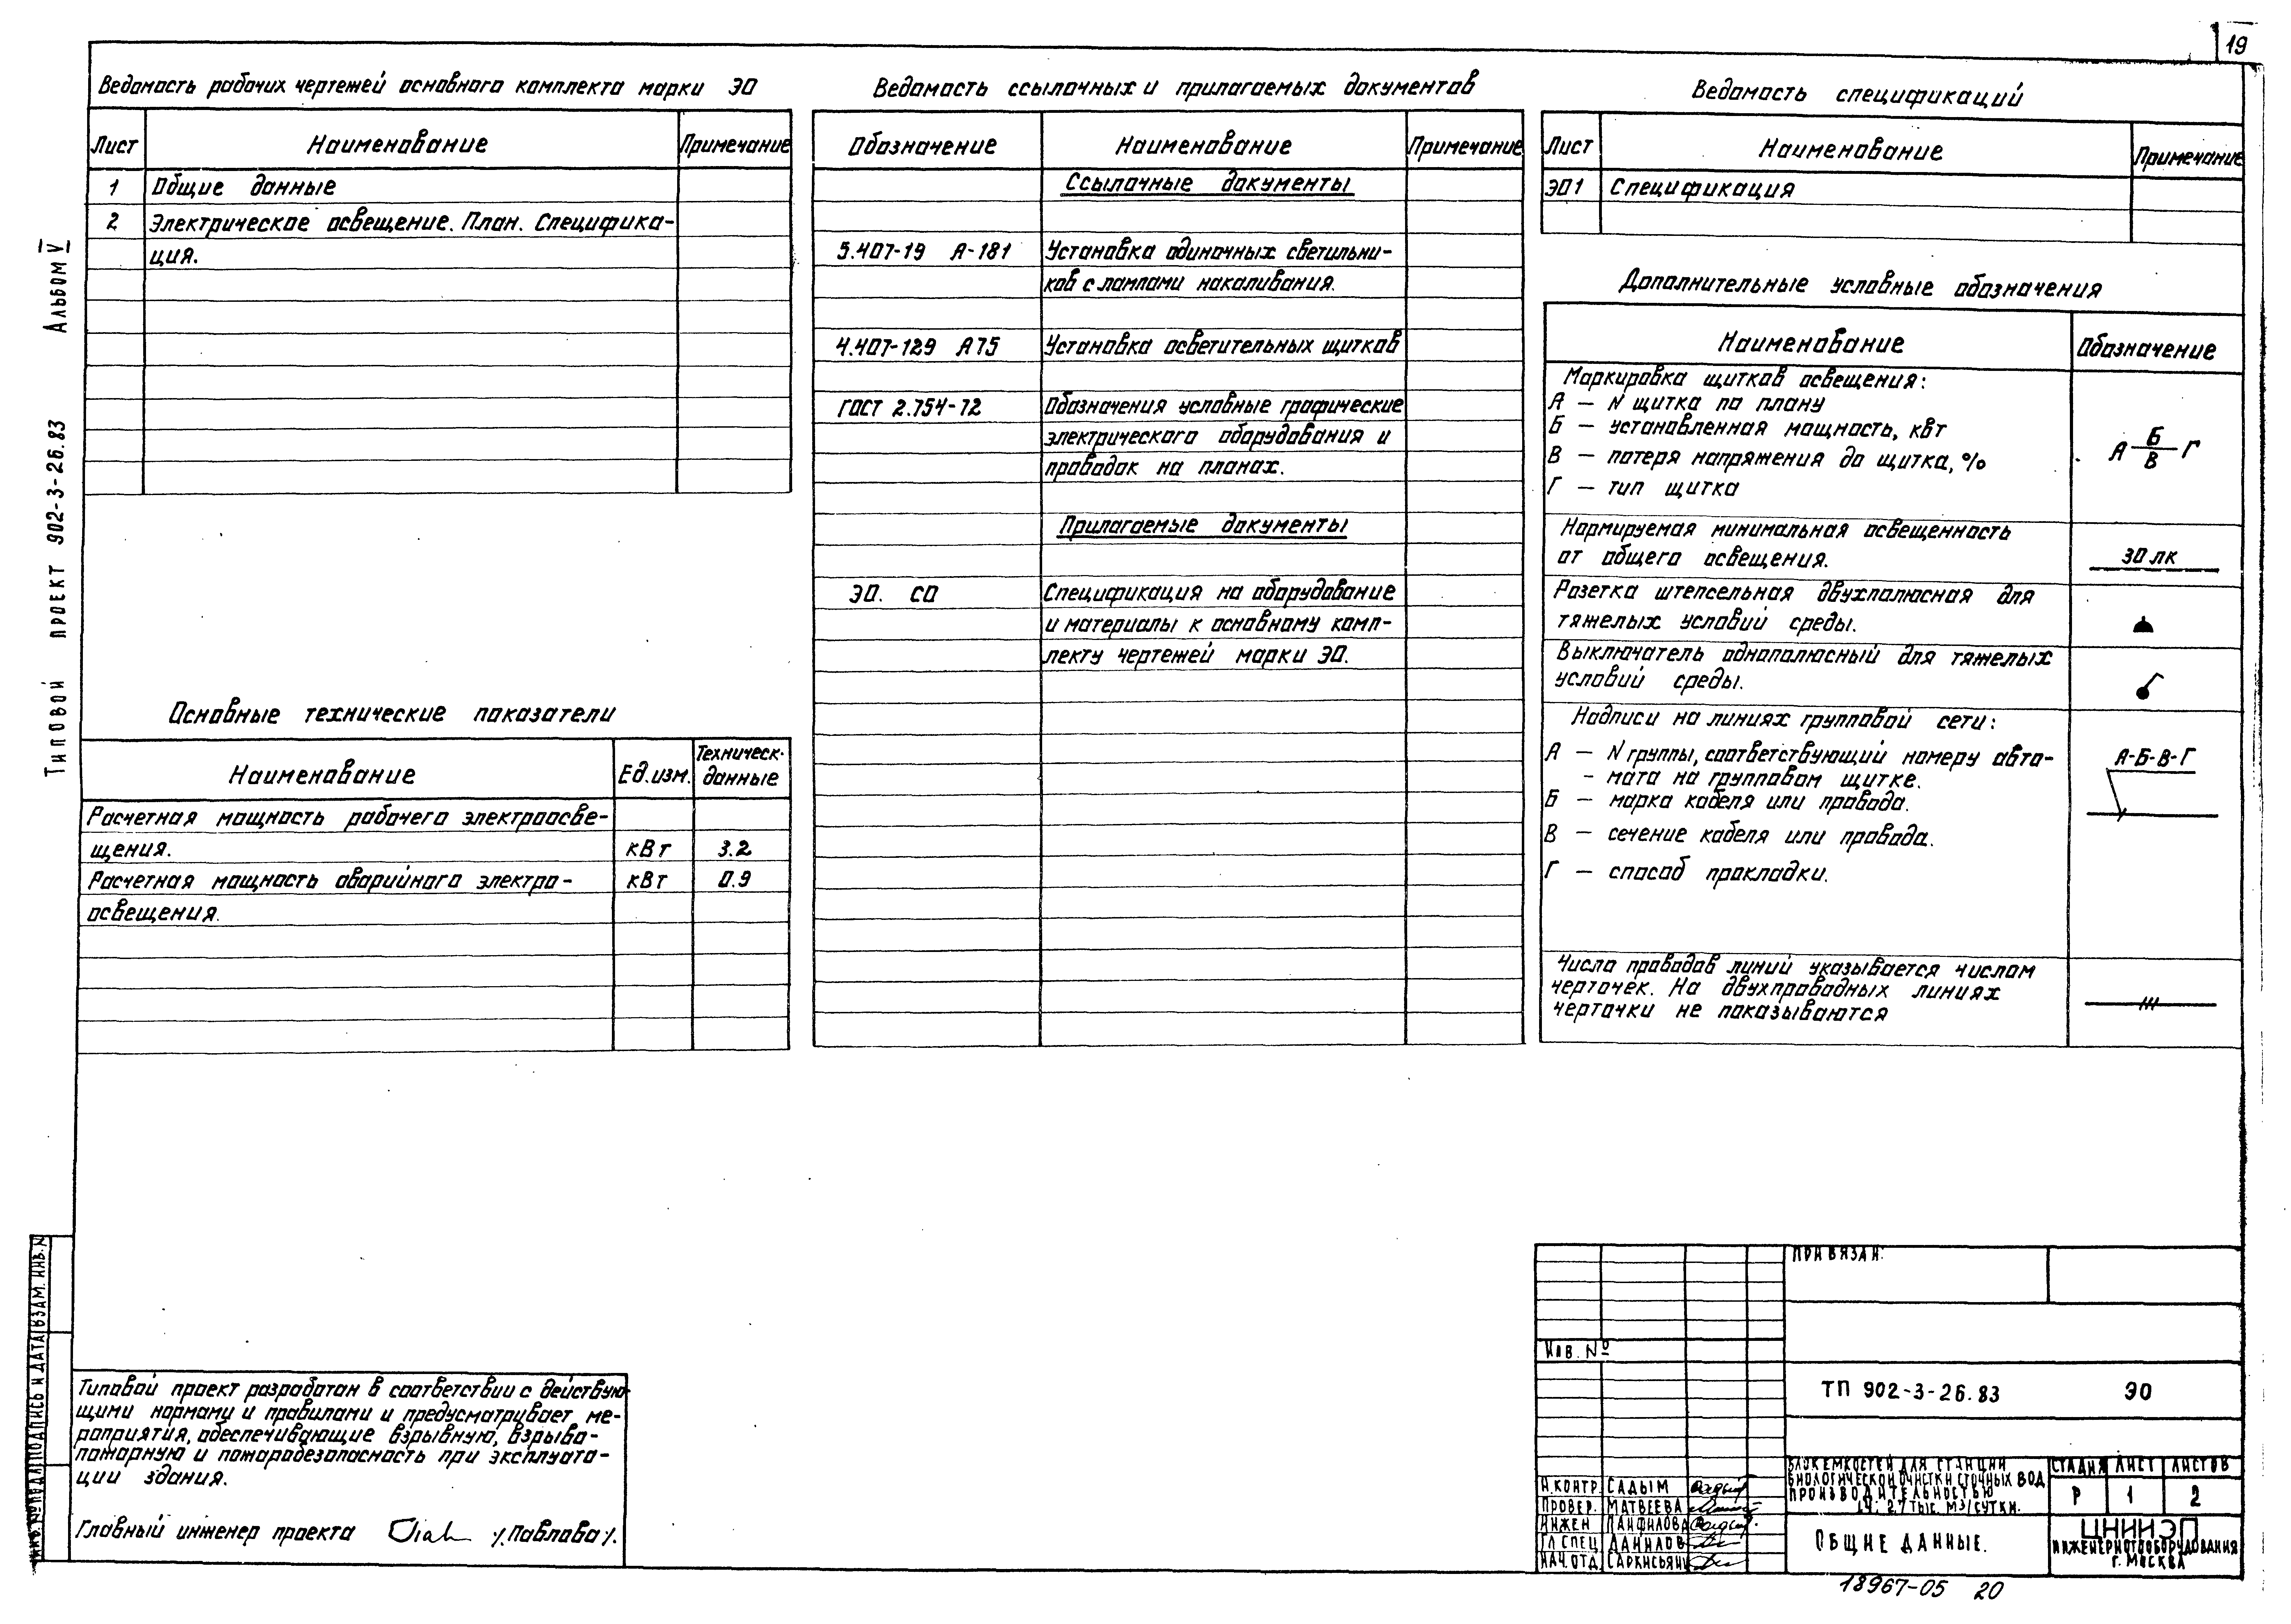 19
Альбом V
Типовой проект 902-3-26.83
Ведомость рабочих чертежей основного комплекта марки ЭО
Лист Наименование Примечание
1 Общие данные
2 Электрическое освещение. План. Специфика-
ция.
Основные технические показатели
Наименование Ед.изм. Техническ.
данные
Расчетная мощность рабочего электроосве-
щения. кВт 3.2
Расчетная мощность аварийного электро- кВт 0.9
освещения.
Ведомость ссылочных и прилагаемых документов
Обозначение Наименование Примечание
Ссылочные документы
5.407-19 А-181 Установка одиночных светильни-
ков с лампами накаливания.
4.407-129 А75 Установка осветительных щитков
ГОСТ 2.754-72 Обозначения условные графические
электрического оборудования и
проводок на планах.
Прилагаемые документы
ЭО. СО Спецификация на оборудование
и материалы к основному комп-
лекту чертежей марки ЭО.
Ведомость спецификаций
Лист Наименование Примечание
ЭО1 Спецификация
Дополнительные условные обозначения
Наименование Обозначение
Маркировка щитков освещения:
А – N щитка по плану
Б – установленная мощность, кВт
В – потеря напряжения до щитка, %
Г – тип щитка
А Б/В Г
Нормируемая минимальная освещенность
от общего освещения. 30 лк
Розетка штепсельная двухполюсная для
тяжелых условий среды.
Выключатель однополюсный для тяжелых
условий среды.
Надписи на линиях групповой сети:
А – N группы, соответствующий номеру авто-
- мата на групповом щитке.
Б – марка кабеля или провода.
В – сечение кабеля или провода.
Г – способ прокладки.
А-Б-В-Г
Число проводов линий указывается числом
черточек. На двухпроводных линиях
черточки не показываются
Типовой проект разработан в соответствии с действую-
щими нормами и правилами и предусматривает ме-
роприятия, обеспечивающие взрывную, взрыво-
пожарную и пожаробезопасность при эксплуата-
ции здания.
Главный инженер проекта /Павлова/.
Инв. № подл Подпись и дата Взам. инв. N
Привязан:
Инв. №
ТП 902-3-26.83 ЭО
Н.контр. Садым
Провер. Матвеева
Инжен Панфилова
Гл спец Данилов
Нач.отд. Саркисьян
Блок емкостей для станции
биологической очистки сточных вод
производительностью
1,4; 2,7 тыс. м3/сутки.
Стадия Лист Листов
Р 1 2
Общие данные.
ЦНИИЭП
инженерного оборудования
г. Москва
18967-05 20